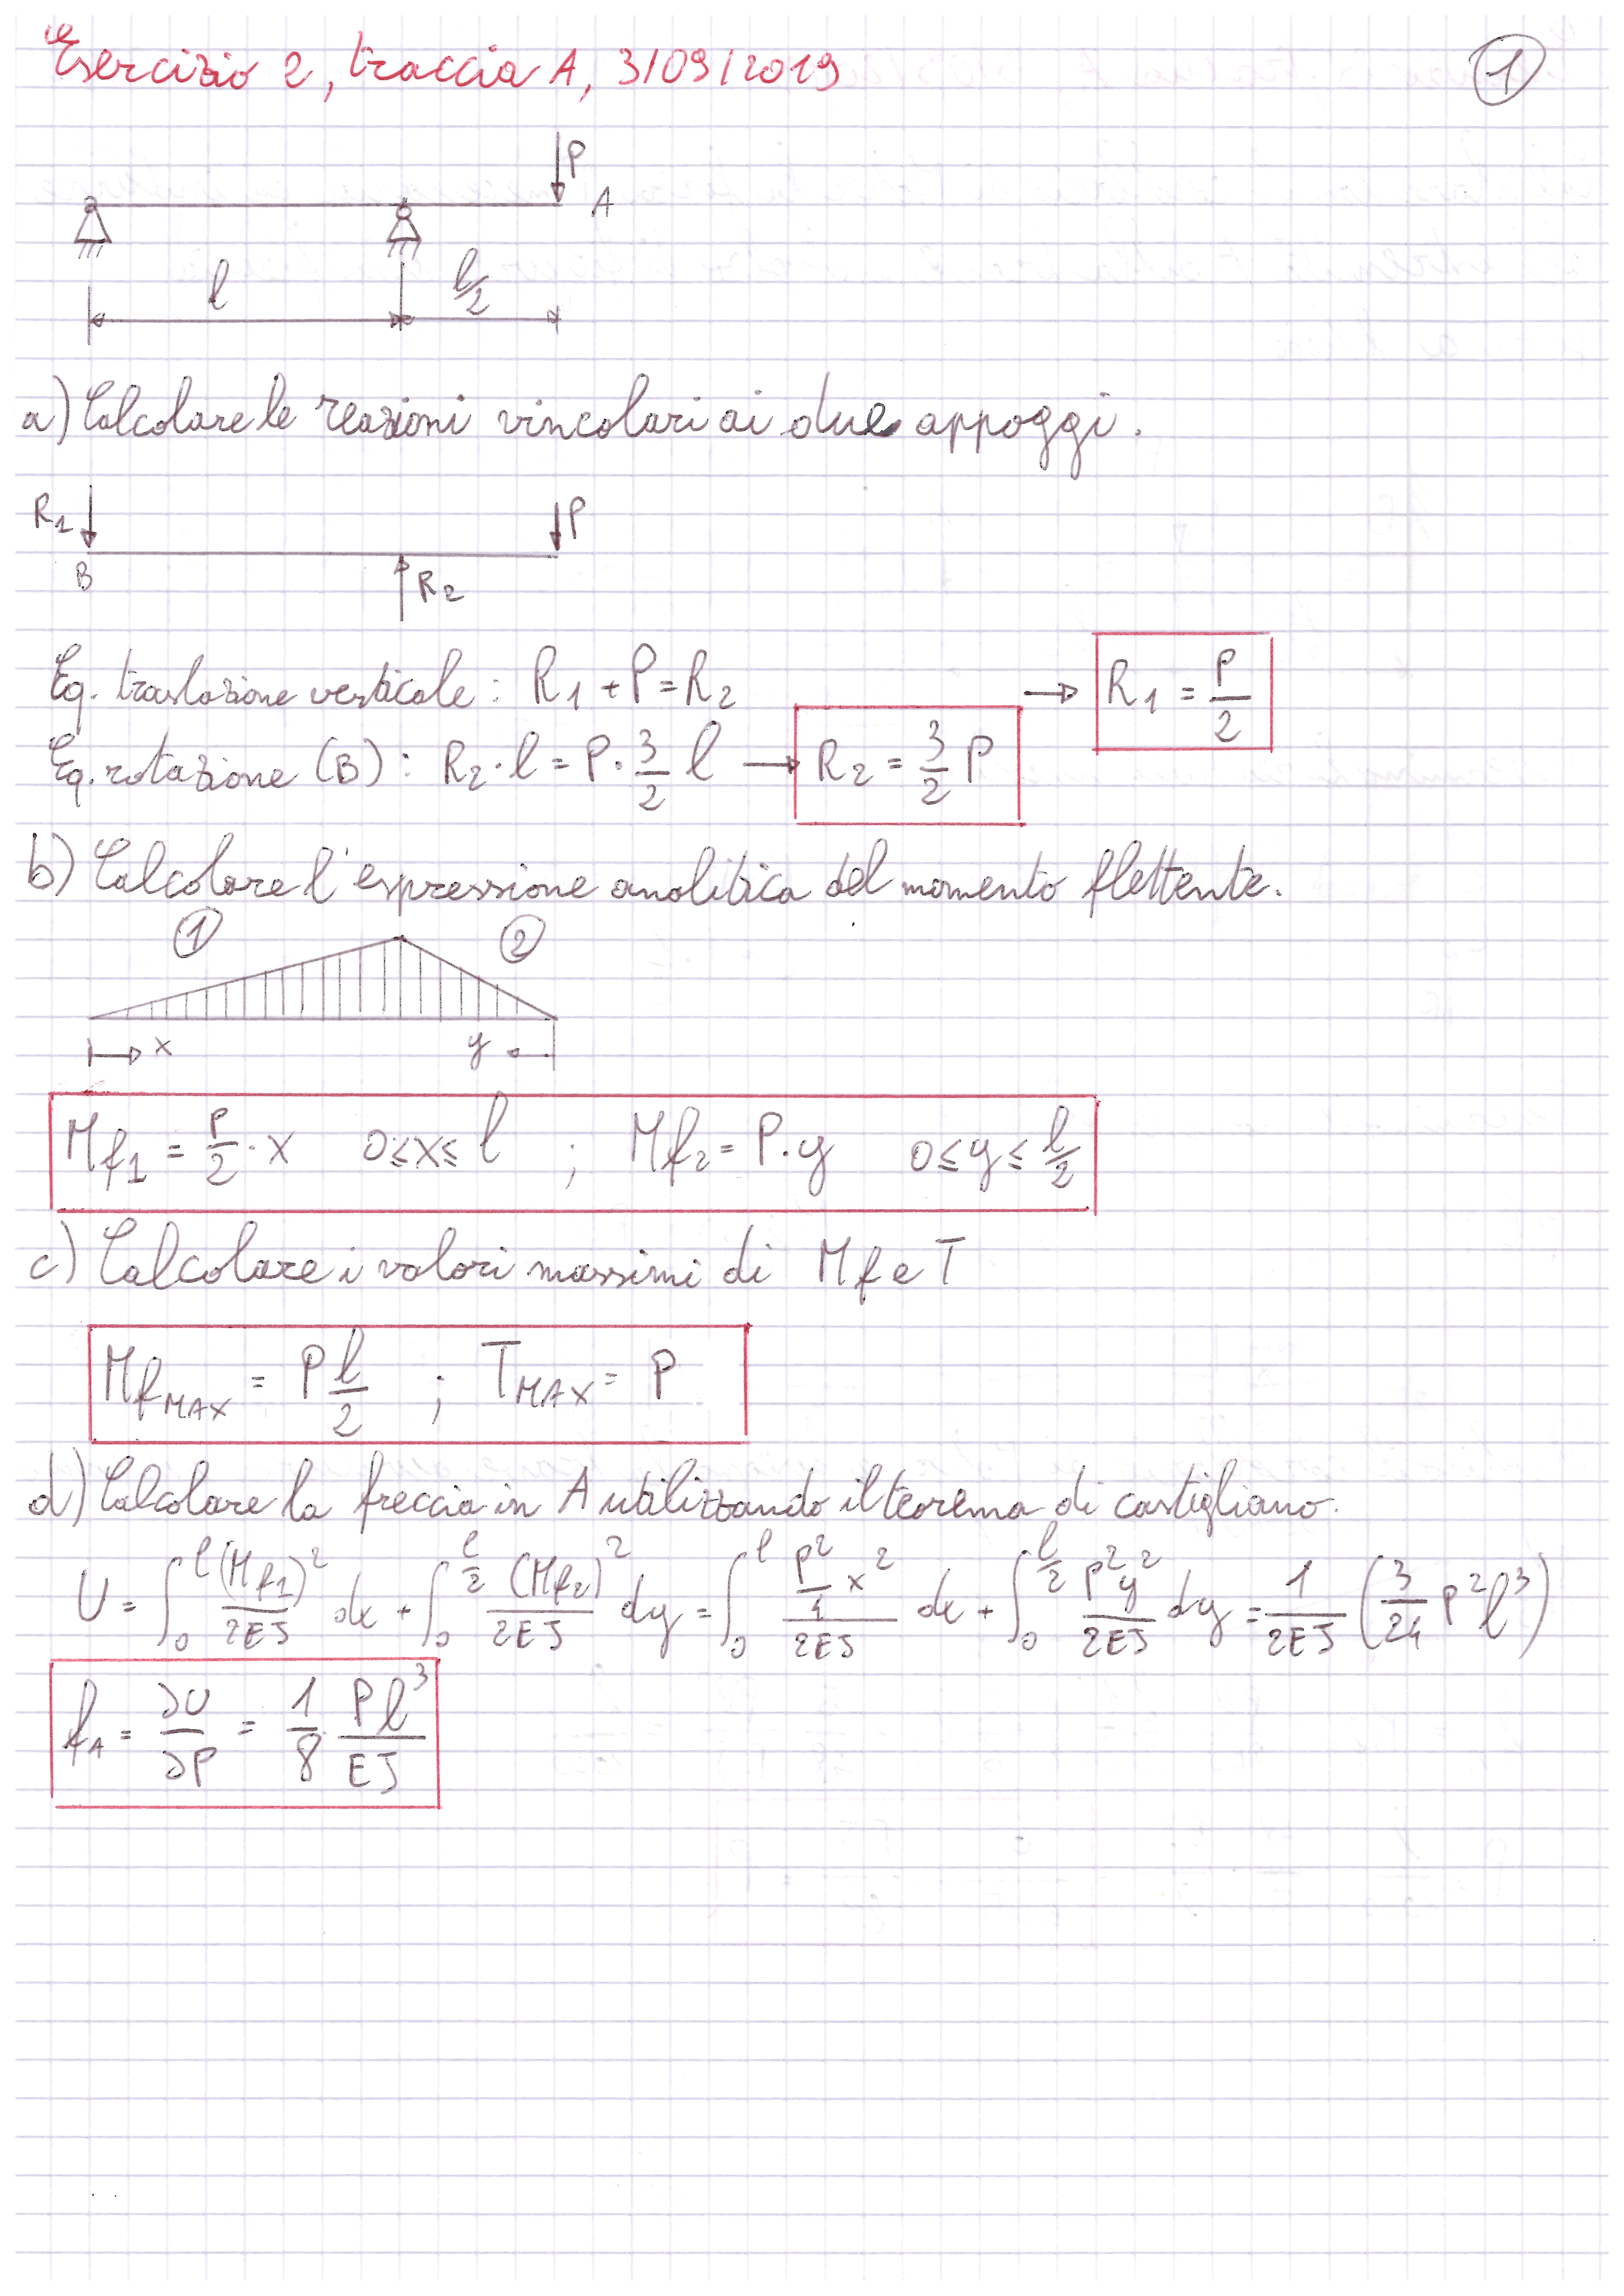 Esercizio 2, traccia A, 3/09/2019
1
P
A
l
l/2
a) Calcolare le reazioni vincolari ai due appoggi.
R1
P
B
R2
Eq. traslazione verticale: R1 + P = R2 → R1 = P/2
Eq. rotazione (B): R2 · l = P · 3/2 l → R2 = 3/2 P
b) Calcolare l'espressione analitica del momento flettente.
1 2
x y
Mf1 = P/2 · x 0 ≤ x ≤ l ; Mf2 = P · y 0 ≤ y ≤ l/2
c) Calcolare i valori massimi di Mf e T
MfMAX = P l/2 ; TMAX = P
d) Calcolare la freccia in A utilizzando il teorema di castigliano.
U = ∫₀^l (Mf1)²/2EJ dx + ∫₀^(l/2) (Mf2)²/2EJ dy = ∫₀^l (P²/4 x²)/2EJ dx + ∫₀^(l/2) P²y²/2EJ dy = 1/2EJ (3/24 P²l³)
fA = ∂U/∂P = 1/8 Pl³/EJ